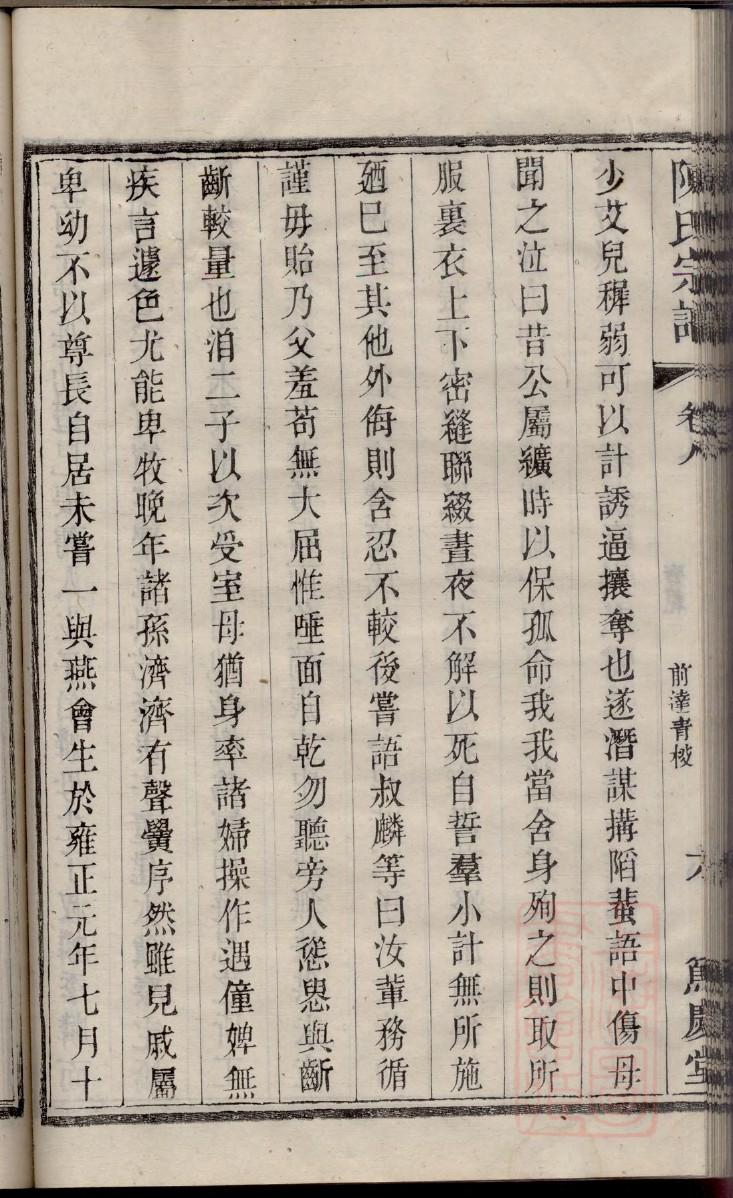 陳氏宗譜
卷八
前達青棱
六
篤慶堂
少艾兒稺弱可以計誘逼攘奪也遂潛謀搆陷蜚語中傷母
聞之泣曰昔公屬纊時以保孤命我我當舍身殉之則取所
服裏衣上下密縫聯綴晝夜不解以死自誓羣小計無所施
廼巳至其他外侮則含忍不較後嘗語叔麟等曰汝輩務循
謹毋貽乃父羞苟無大屈惟唾面自乾勿聽旁人慫恿與齗
齗較量也洎二子以次受室母猶身率諸婦操作遇僮婢無
疾言遽色尤能卑牧晚年諸孫濟濟有聲黌序然雖見戚屬
卑幼不以尊長自居未嘗一與燕會生於雍正元年七月十